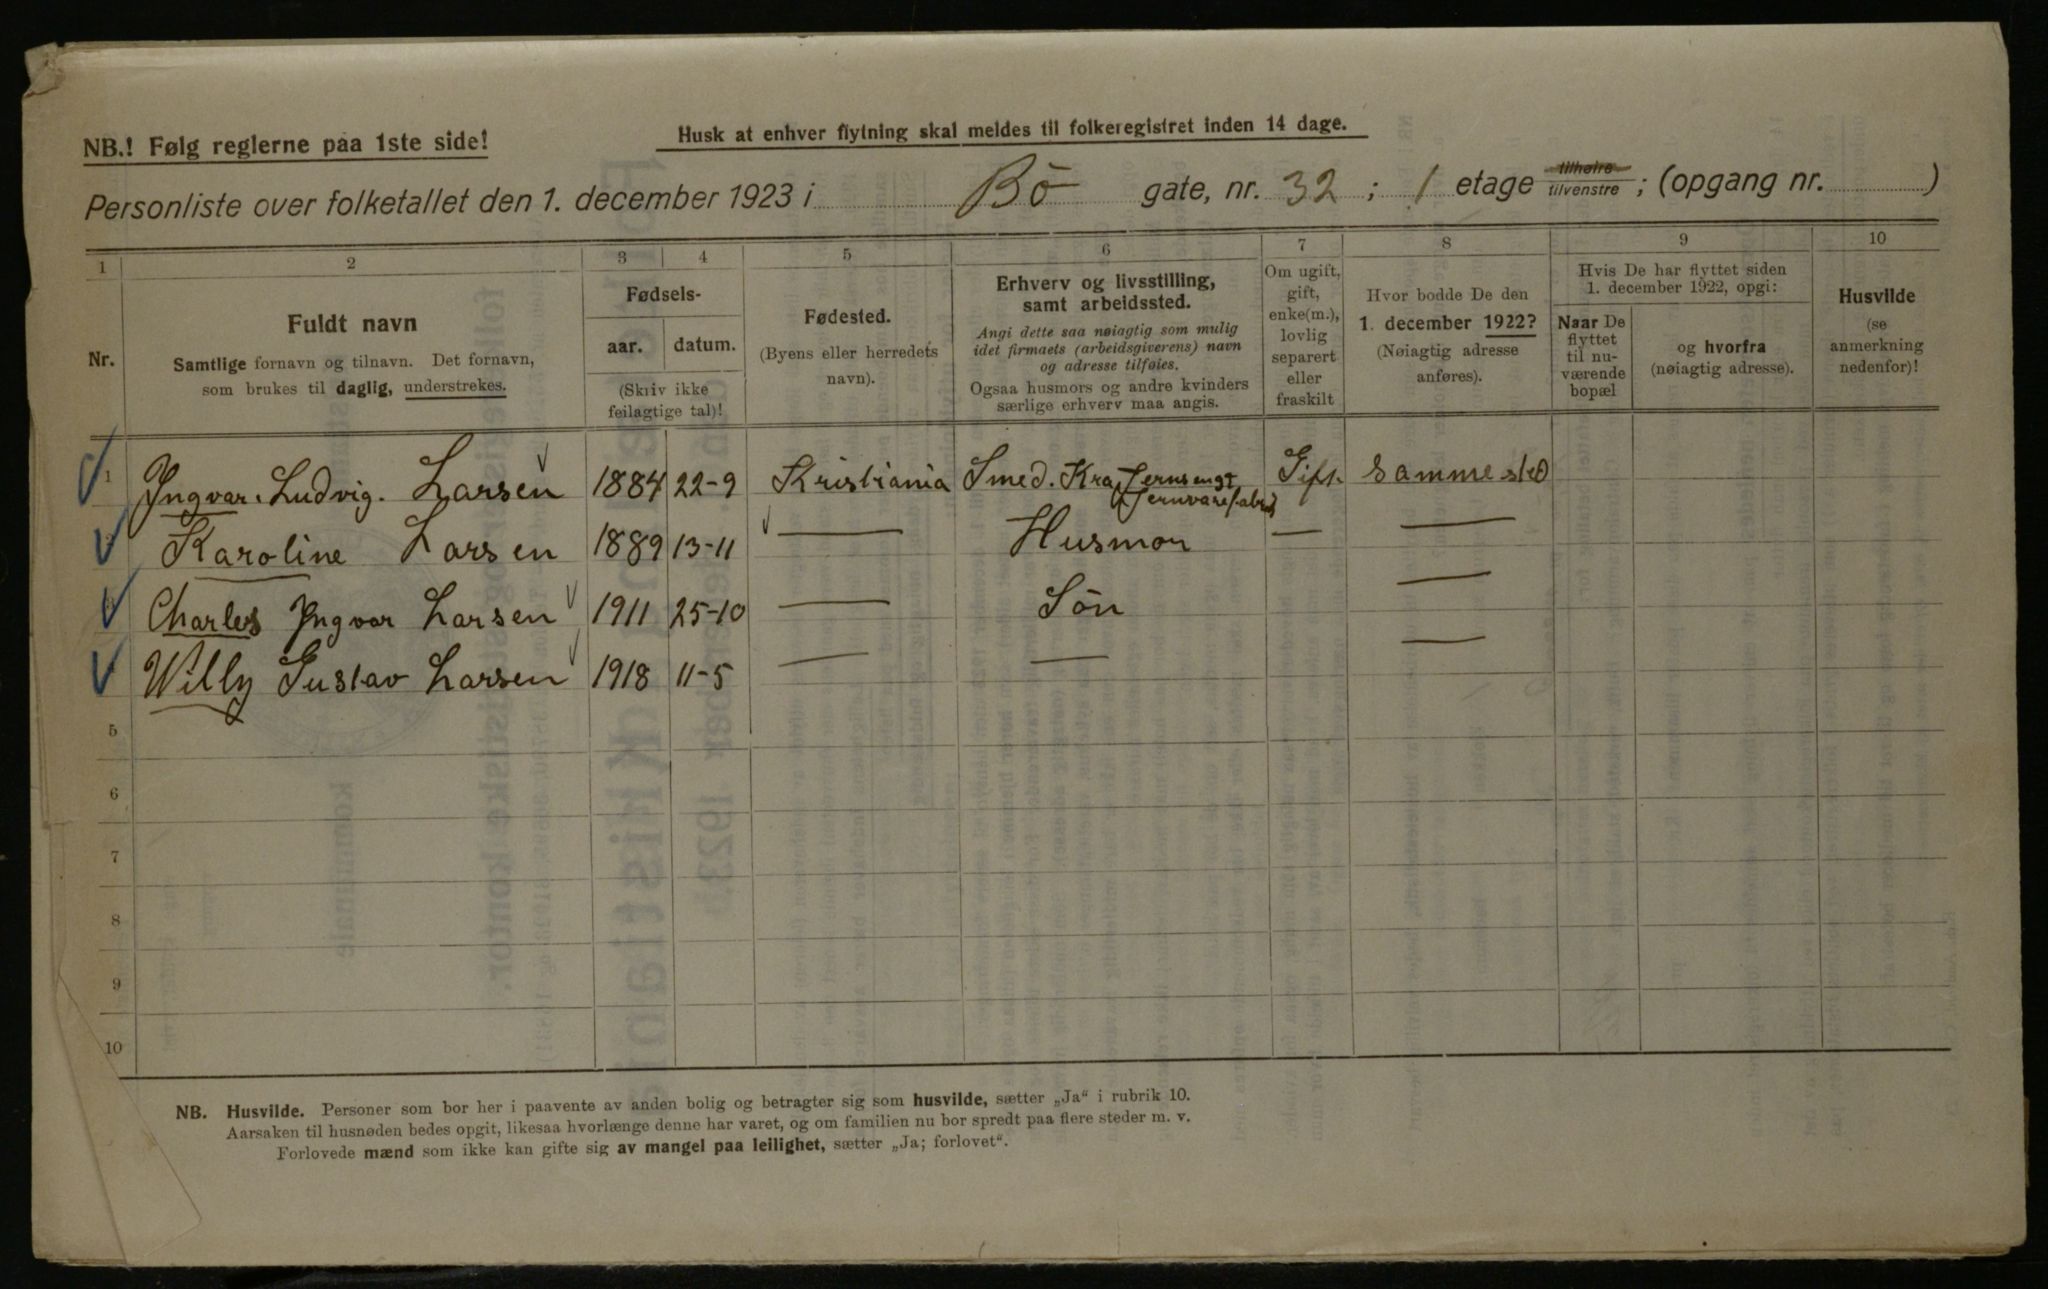 NB.! Følg reglerne paa 1ste side!
Husk at enhver flytning skal meldes til folkeregistret inden 14 dage.
Personliste over folketallet den 1. december 1923 i Bö gate, nr. 32 ; 1 etage tilhøire tilvenstre ; (opgang nr. )
1 2 3 4 5 6 7 8 9 10
Nr.
Fuldt navn
Samtlige fornavn og tilnavn. Det fornavn,
som brukes til daglig, understrekes.
Fødsels-
aar. datum.
(Skriv ikke
feilagtige tal)!
Fødested.
(Byens eller herredets
navn).
Erhverv og livsstilling,
samt arbeidssted.
Angi dette saa nøiagtig som mulig
idet firmaets (arbeidsgiverens) navn
og adresse tilføies.
Ogsaa husmors og andre kvinders
særlige erhverv maa angis.
Om ugift,
gift,
enke(m.),
lovlig
separert
eller
fraskilt
Hvor bodde De den
1. december 1922?
(Nøiagtig adresse
anføres).
Hvis De har flyttet siden
1. december 1922, opgi:
Naar De
flyttet
til nu-
værende
bopæl
og hvorfra
(nøiagtig adresse).
Husvilde
(se
anmerkning
nedenfor)!
1 Yngvar. Ludvig. Larsen 1884 22-9 Kristiania Smed. Kra Jernseng & Jernvarefabrik Gift. sammested
2 Karoline Larsen 1889 13-11 — Husmor — —
3 Charles Yngvar Larsen 1911 25-10 — Sön —
4 Willy Gustav Larsen 1918 11-5 — — —
5
6
7
8
9
10
NB. Husvilde. Personer som bor her i paavente av anden bolig og betragter sig som husvilde, sætter „Ja“ i rubrik 10.
Aarsaken til husnøden bedes opgit, likesaa hvorlænge denne har varet, og om familien nu bor spredt paa flere steder m. v.
Forlovede mænd som ikke kan gifte sig av mangel paa leilighet, sætter „Ja; forlovet“.